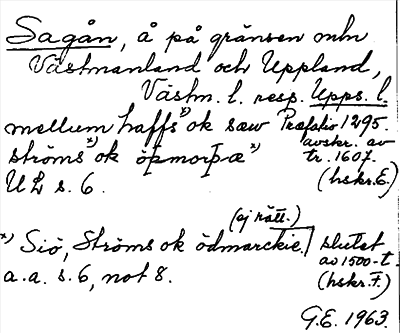 Sagån, å på gränsen mln
Västmanland och Uppland,
Västm. l. resp. Upps. l.
mellum haffs*) ok saw Præfatio 1295.
ströms*) ok öþmorþæ*) avskr. av tr. 1607.
UL s. 6. (hskr. E.)
(ej rätt.)
*) Siö, Ströms ok ödmarckie. slutet
a.a. s. 6, not 8. av 1500-t.
(hskr. F.)
G.E. 1963.